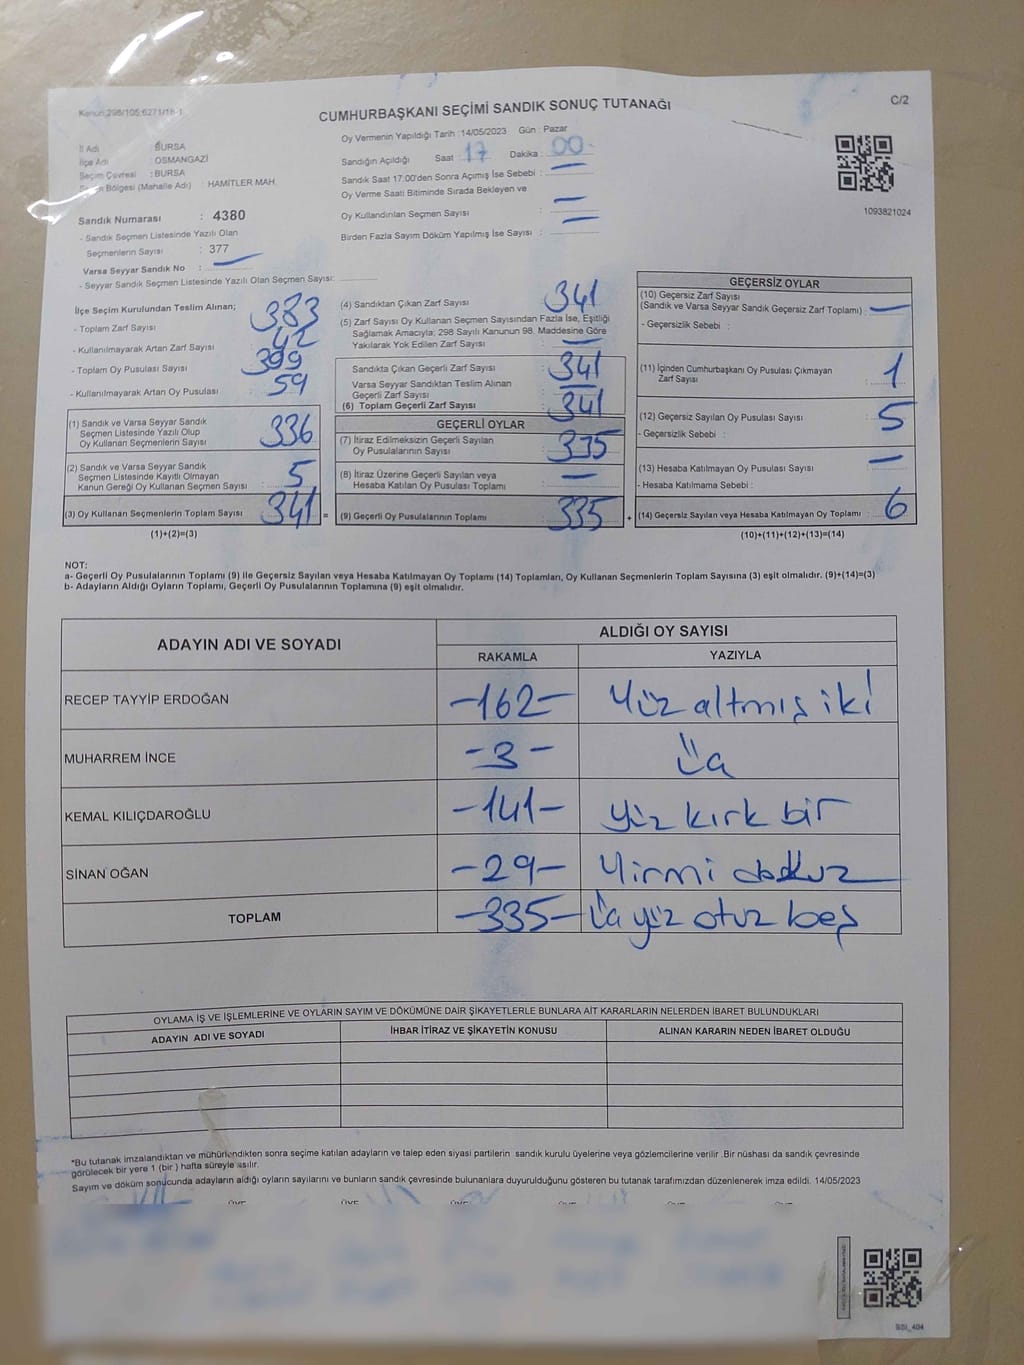 Kanun:298/105;6271/18-1
C/2
CUMHURBAŞKANI SEÇİMİ SANDIK SONUÇ TUTANAĞI
Oy Vermenin Yapıldığı Tarih :14/05/2023 Gün : Pazar
İl Adı : BURSA
İlçe Adı : OSMANGAZİ
Seçim Çevresi : BURSA
Seçim Bölgesi (Mahalle Adı) : HAMİTLER MAH.
Sandık Numarası : 4380
- Sandık Seçmen Listesinde Yazılı Olan
Seçmenlerin Sayısı : 377
Varsa Seyyar Sandık No : —
- Seyyar Sandık Seçmen Listesinde Yazılı Olan Seçmen Sayısı:
Sandığın Açıldığı Saat : 17 Dakika : 00
Sandık Saat 17:00'den Sonra Açımış İse Sebebi : —
Oy Verme Saati Bitiminde Sırada Bekleyen ve
Oy Kullandırılan Seçmen Sayısı : —
Birden Fazla Sayım Döküm Yapılmış İse Sayısı : —
1093821024
İlçe Seçim Kurulundan Teslim Alınan;
- Toplam Zarf Sayısı 383
- Kullanılmayarak Artan Zarf Sayısı 42
- Toplam Oy Pusulası Sayısı 399
- Kullanılmayarak Artan Oy Pusulası 59
(1) Sandık ve Varsa Seyyar Sandık
Seçmen Listesinde Yazılı Olup
Oy Kullanan Seçmenlerin Sayısı 336
(2) Sandık ve Varsa Seyyar Sandık
Seçmen Listesinde Kayıtlı Olmayan
Kanun Gereği Oy Kullanan Seçmen Sayısı 5
(3) Oy Kullanan Seçmenlerin Toplam Sayısı 341 =
(1)+(2)=(3)
(4) Sandıktan Çıkan Zarf Sayısı 341
(5) Zarf Sayısı Oy Kullanan Seçmen Sayısından Fazla İse, Eşitliği
Sağlamak Amacıyla; 298 Sayılı Kanunun 98. Maddesine Göre
Yakılarak Yok Edilen Zarf Sayısı —
Sandıkta Çıkan Geçerli Zarf Sayısı 341
Varsa Seyyar Sandıktan Teslim Alınan
Geçerli Zarf Sayısı —
(6) Toplam Geçerli Zarf Sayısı 341
GEÇERLİ OYLAR
(7) İtiraz Edilmeksizin Geçerli Sayılan
Oy Pusulalarının Sayısı : 335
(8) İtiraz Üzerine Geçerli Sayılan veya
Hesaba Katılan Oy Pusulası Toplamı : —
(9) Geçerli Oy Pusulalarının Toplamı : 335 +
GEÇERSİZ OYLAR
(10) Geçersiz Zarf Sayısı
(Sandık ve Varsa Seyyar Sandık Geçersiz Zarf Toplamı) : —
- Geçersizlik Sebebi :
(11) İçinden Cumhurbaşkanı Oy Pusulası Çıkmayan
Zarf Sayısı : 1
(12) Geçersiz Sayılan Oy Pusulası Sayısı : 5
- Geçersizlik Sebebi :
(13) Hesaba Katılmayan Oy Pusulası Sayısı : —
- Hesaba Katılmama Sebebi :
(14) Geçersiz Sayılan veya Hesaba Katılmayan Oy Toplamı : 6
(10)+(11)+(12)+(13)=(14)
NOT:
a- Geçerli Oy Pusulalarının Toplamı (9) ile Geçersiz Sayılan veya Hesaba Katılmayan Oy Toplamı (14) Toplamları, Oy Kullanan Seçmenlerin Toplam Sayısına (3) eşit olmalıdır. (9)+(14)=(3)
b- Adayların Aldığı Oyların Toplamı, Geçerli Oy Pusulalarının Toplamına (9) eşit olmalıdır.
ADAYIN ADI VE SOYADI
ALDIĞI OY SAYISI
RAKAMLA YAZIYLA
RECEP TAYYİP ERDOĞAN -162- Yüz altmış iki
MUHARREM İNCE -3- üç
KEMAL KILIÇDAROĞLU -141- yüz kırk bir
SİNAN OĞAN -29- Yirmi dokuz
TOPLAM -335- üç yüz otuz beş
OYLAMA İŞ VE İŞLEMLERİNE VE OYLARIN SAYIM VE DÖKÜMÜNE DAİR ŞİKAYETLERLE BUNLARA AİT KARARLARIN NELERDEN İBARET BULUNDUKLARI
ADAYIN ADI VE SOYADI İHBAR İTİRAZ VE ŞİKAYETİN KONUSU ALINAN KARARIN NEDEN İBARET OLDUĞU
*Bu tutanak imzalandıktan ve mühürlendikten sonra seçime katılan adayların ve talep eden siyasi partilerin sandık kurulu üyelerine veya gözlemcilerine verilir .Bir nüshası da sandık çevresinde
görülecek bir yere 1 (bir ) hafta süreyle asılır.
Sayım ve döküm sonucunda adayların aldığı oyların sayılarını ve bunların sandık çevresinde bulunanlara duyurulduğunu gösteren bu tutanak tarafımızdan düzenlenerek imza edildi. 14/05/2023
SSI_404